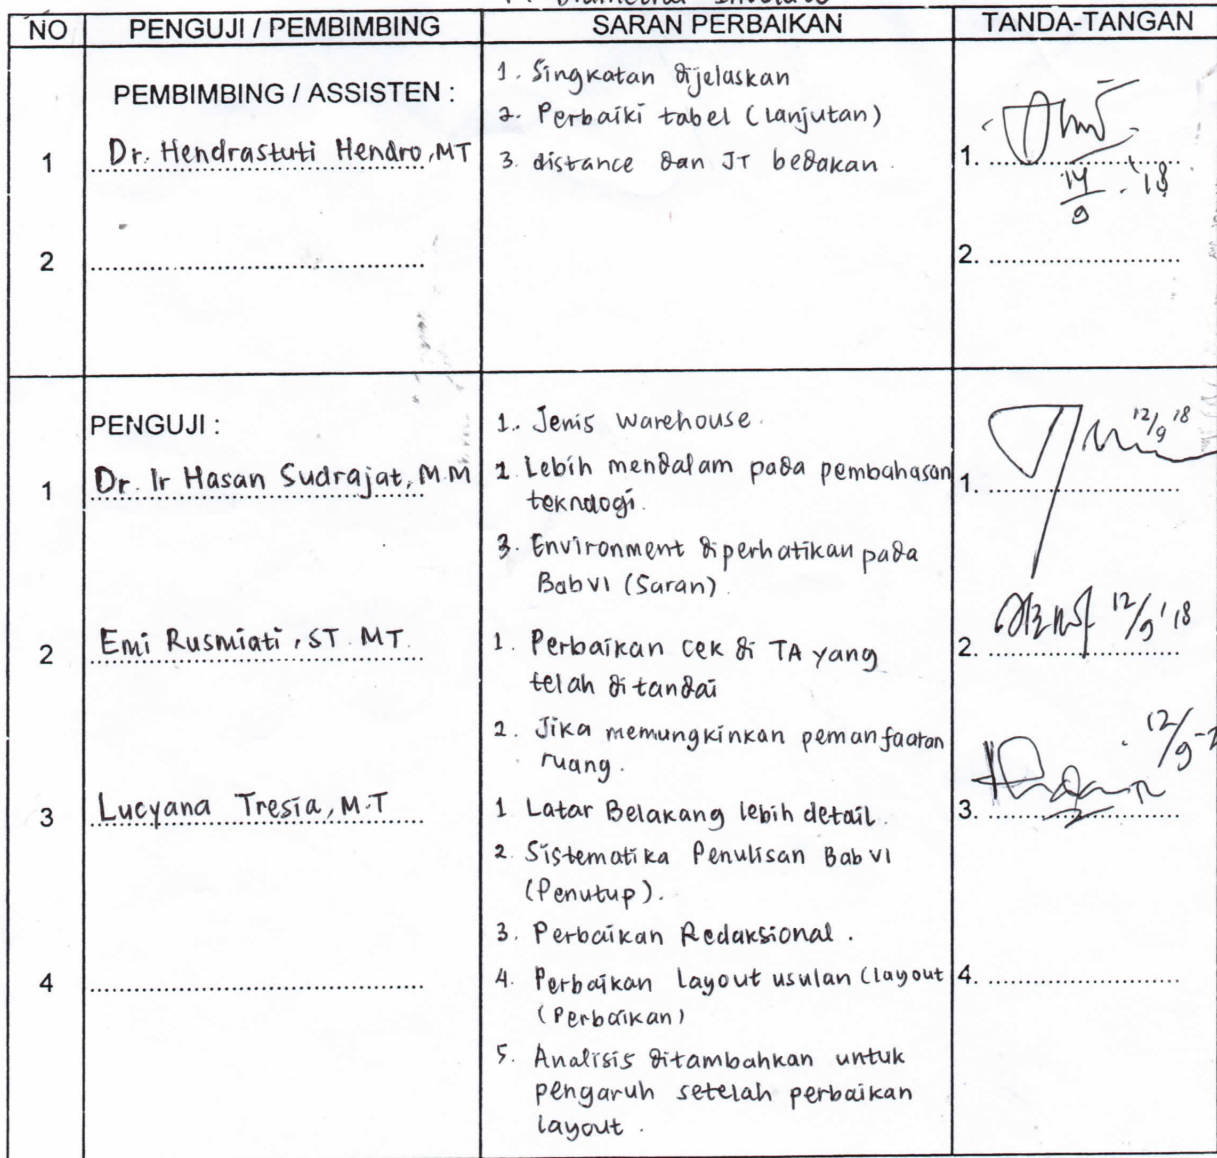 NO PENGUJI / PEMBIMBING SARAN PERBAIKAN TANDA-TANGAN
PEMBIMBING / ASSISTEN :
1 Dr. Hendrastuti Hendro, MT
1. Singkatan dijelaskan
2. Perbaiki tabel (lanjutan)
3. distance dan JT bedakan.
1. ..............................
14/9 - '18
2 ..............................
2. ..............................
PENGUJI :
1 Dr. Ir Hasan Sudrajat, M.M
1. Jenis Warehouse.
2. Lebih mendalam pada pembahasan
teknologi.
3. Environment diperhatikan pada
Bab VI (Saran).
1. ..............................
12/9 '18
2 Emi Rusmiati, ST. MT.
1. Perbaikan cek di TA yang
telah ditandai
2. Jika memungkinkan pemanfaatan
ruang.
2. ..............................
12/9 '18
3 Lucyana Tresia, M.T
1. Latar Belakang lebih detail.
2. Sistematika Penulisan Bab VI
(Penutup).
3. Perbaikan Redaksional.
4. Perbaikan Layout usulan (layout
(Perbaikan)
5. Analisis ditambahkan untuk
pengaruh setelah perbaikan
layout.
3. ..............................
12/9
4 ..............................
4. ..............................